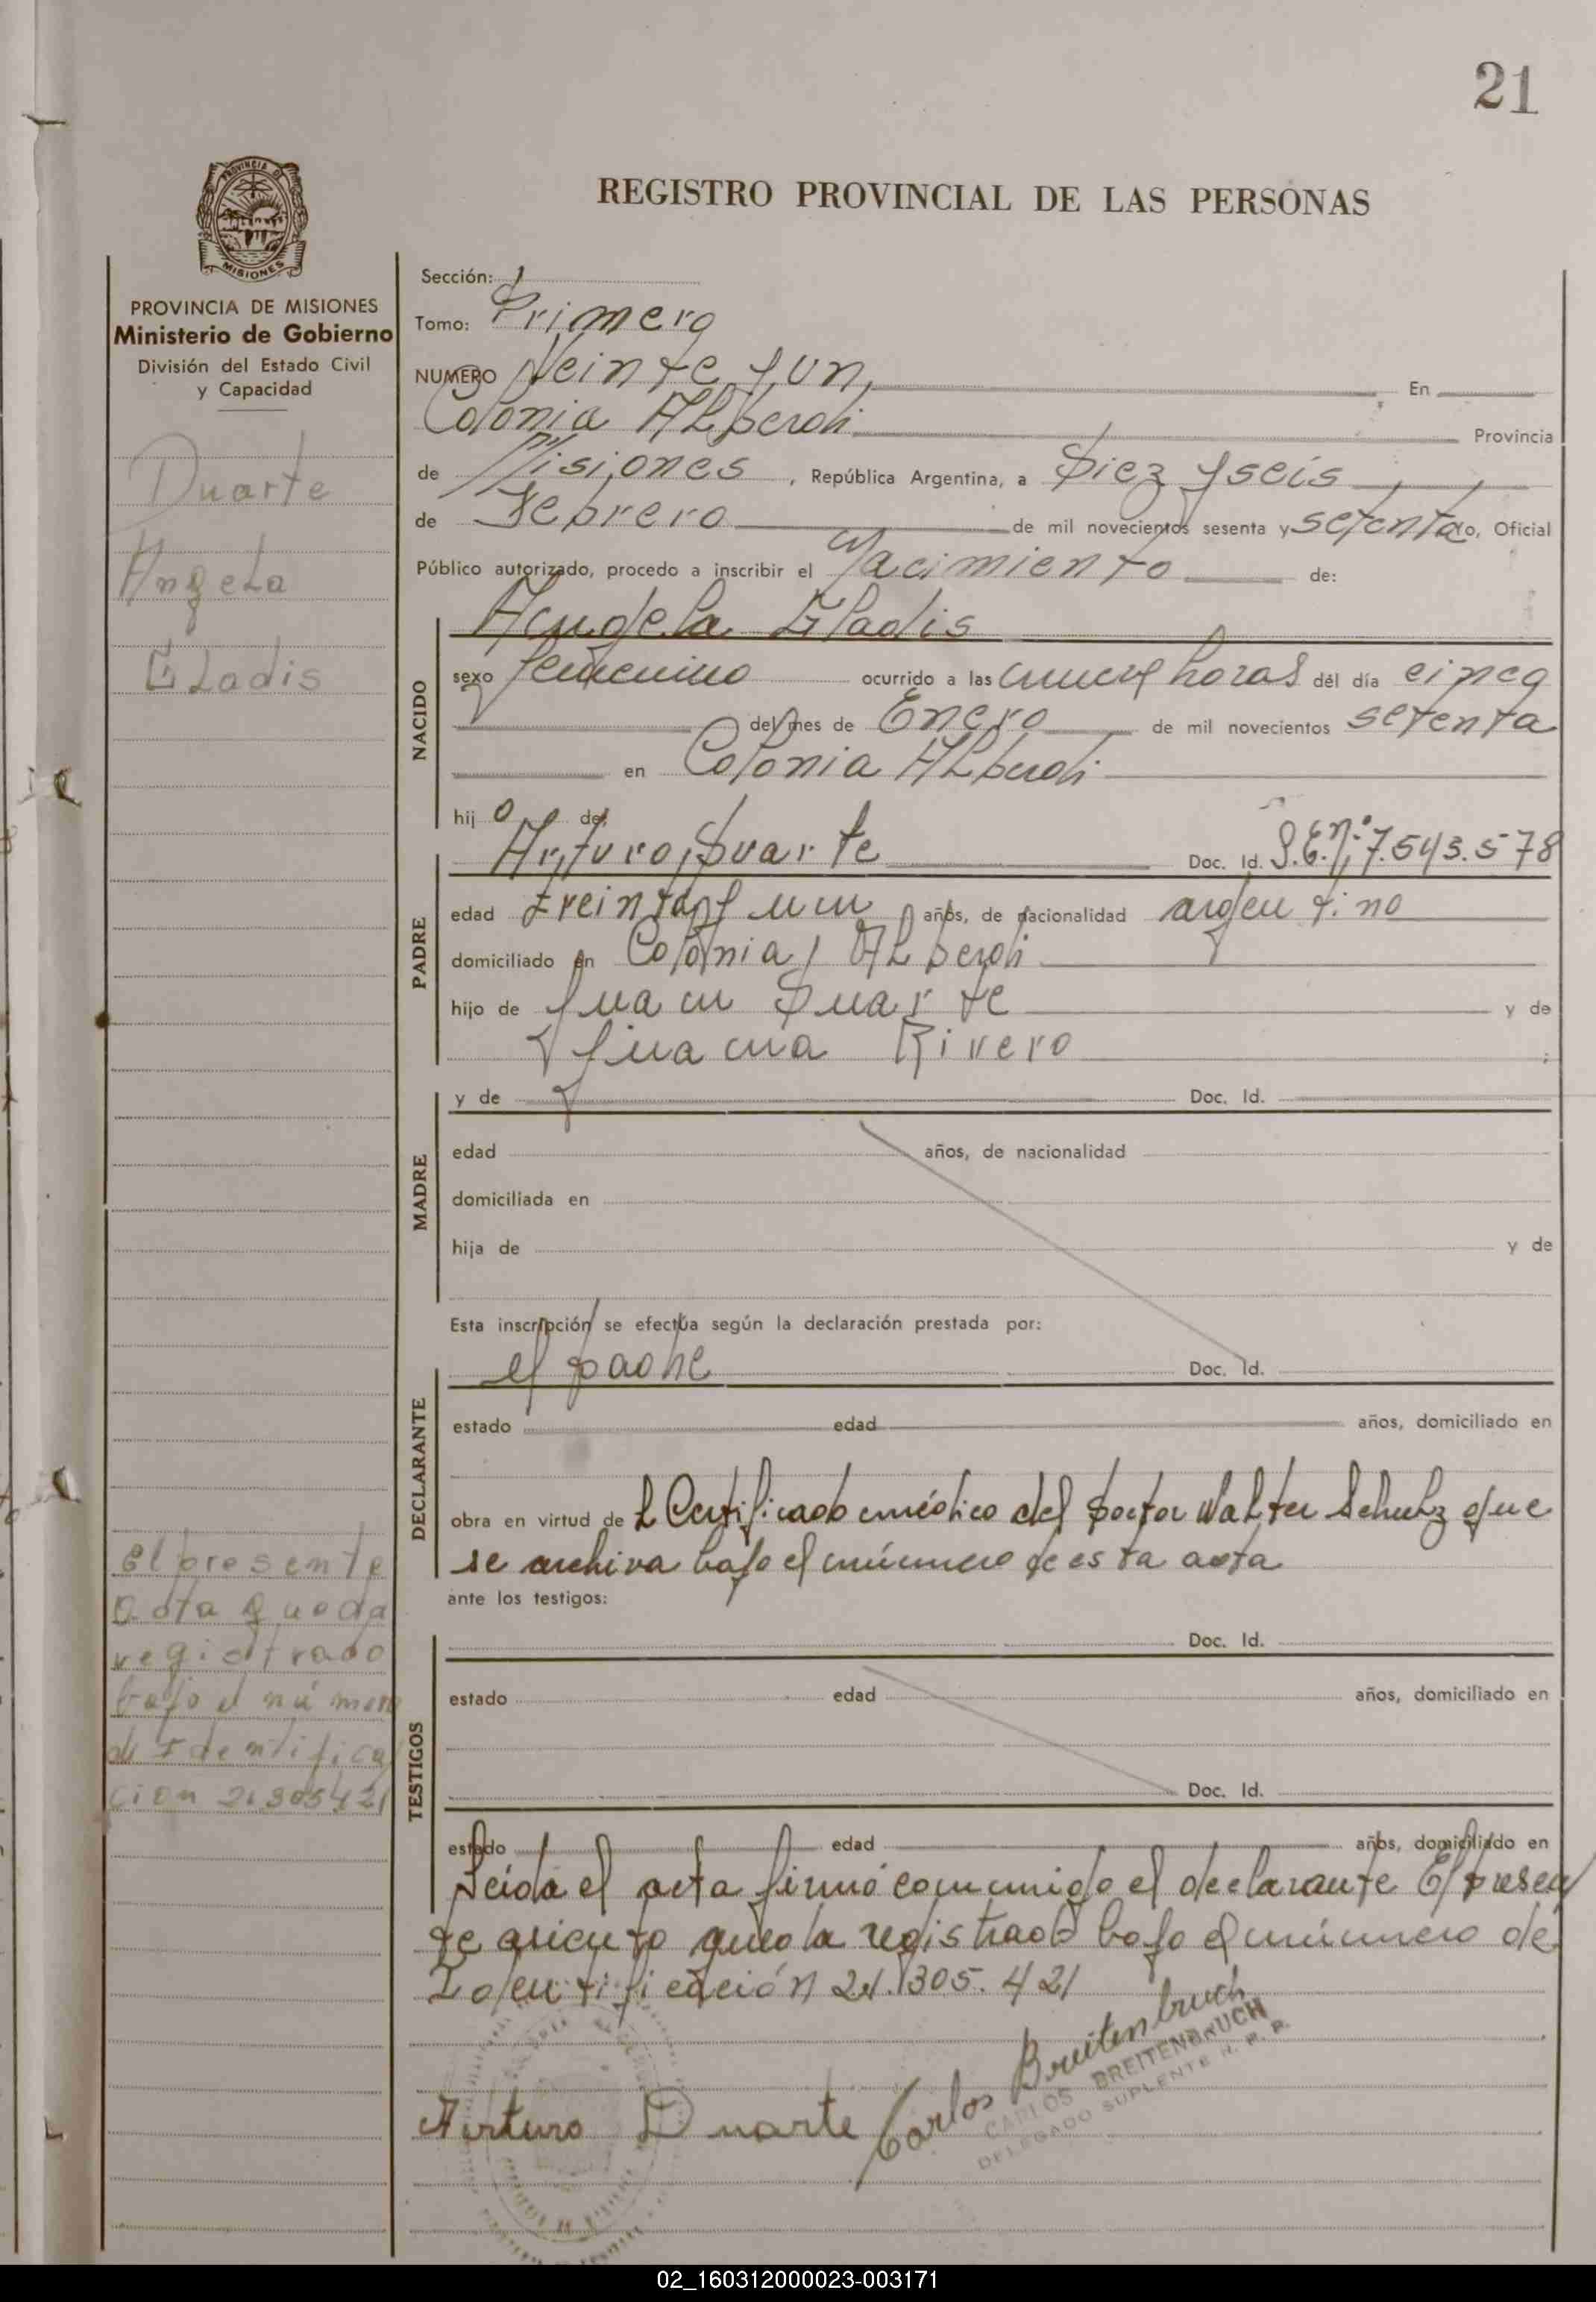 21
REGISTRO PROVINCIAL DE LAS PERSONAS
PROVINCIA DE MISIONES
MISIONES
PROVINCIA DE MISIONES
Ministerio de Gobierno
División del Estado Civil
y Capacidad
Duarte
Angela
Gladis
El presente
acta queda
registrado
bajo el número
de Identifica
ción 21.305421
Sección: 1
Tomo: Primero
NUMERO Veinte y un, En
Colonia Alberdi Provincia
de Misiones, República Argentina, a Diez y seis
de Febrero de mil novecientos sesenta y setenta yo, Oficial
Público autorizado, procedo a inscribir el Nacimiento de:
NACIDO
Angela Gladis
sexo femenino ocurrido a las nueve horas del día cinco
del mes de Enero de mil novecientos setenta
en Colonia Alberdi
hij o de,
PADRE
Arturo, Duarte Doc. Id. L.E.n.° 7.543.578
edad treinta y un años, de nacionalidad argentino
domiciliado en Colonia Alberdi
hijo de Juan Duarte y de
Juana Rivero ;
MADRE
y de Doc. Id.
edad años, de nacionalidad
domiciliada en
hija de y de
Esta inscripción se efectúa según la declaración prestada por:
DECLARANTE
el padre Doc. Id.
estado edad años, domiciliado en
obra en virtud de l Certificado médico del Doctor Walter Schulz que
se archiva bajo el número de esta acta
ante los testigos:
TESTIGOS
Doc. Id.
estado edad años, domiciliado en
Doc. Id.
estado edad años, domiciliado en
Leída el acta firmó conmigo el declarante El presen
te asiento queda registrado bajo el número de
Identificación 21.305.421
Arturo Duarte Carlos Breitenbruch
CARLOS BREITENBRUCH
DELEGADO SUPLENTE R. P. P.
02_160312000023-003171